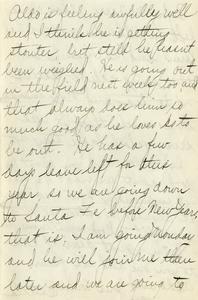 Aldo is feeling awfully well
and I think he is getting
stouter but still he hasn't
been weighed. He is going out
in the field next week too and
that always does him so
much good, as he loves so to
be out. He has a few
days leave left for this
year so we are going down
to Santa Fe before New Years,
that is, I am going Monday
and he will join me there
later and we are going to